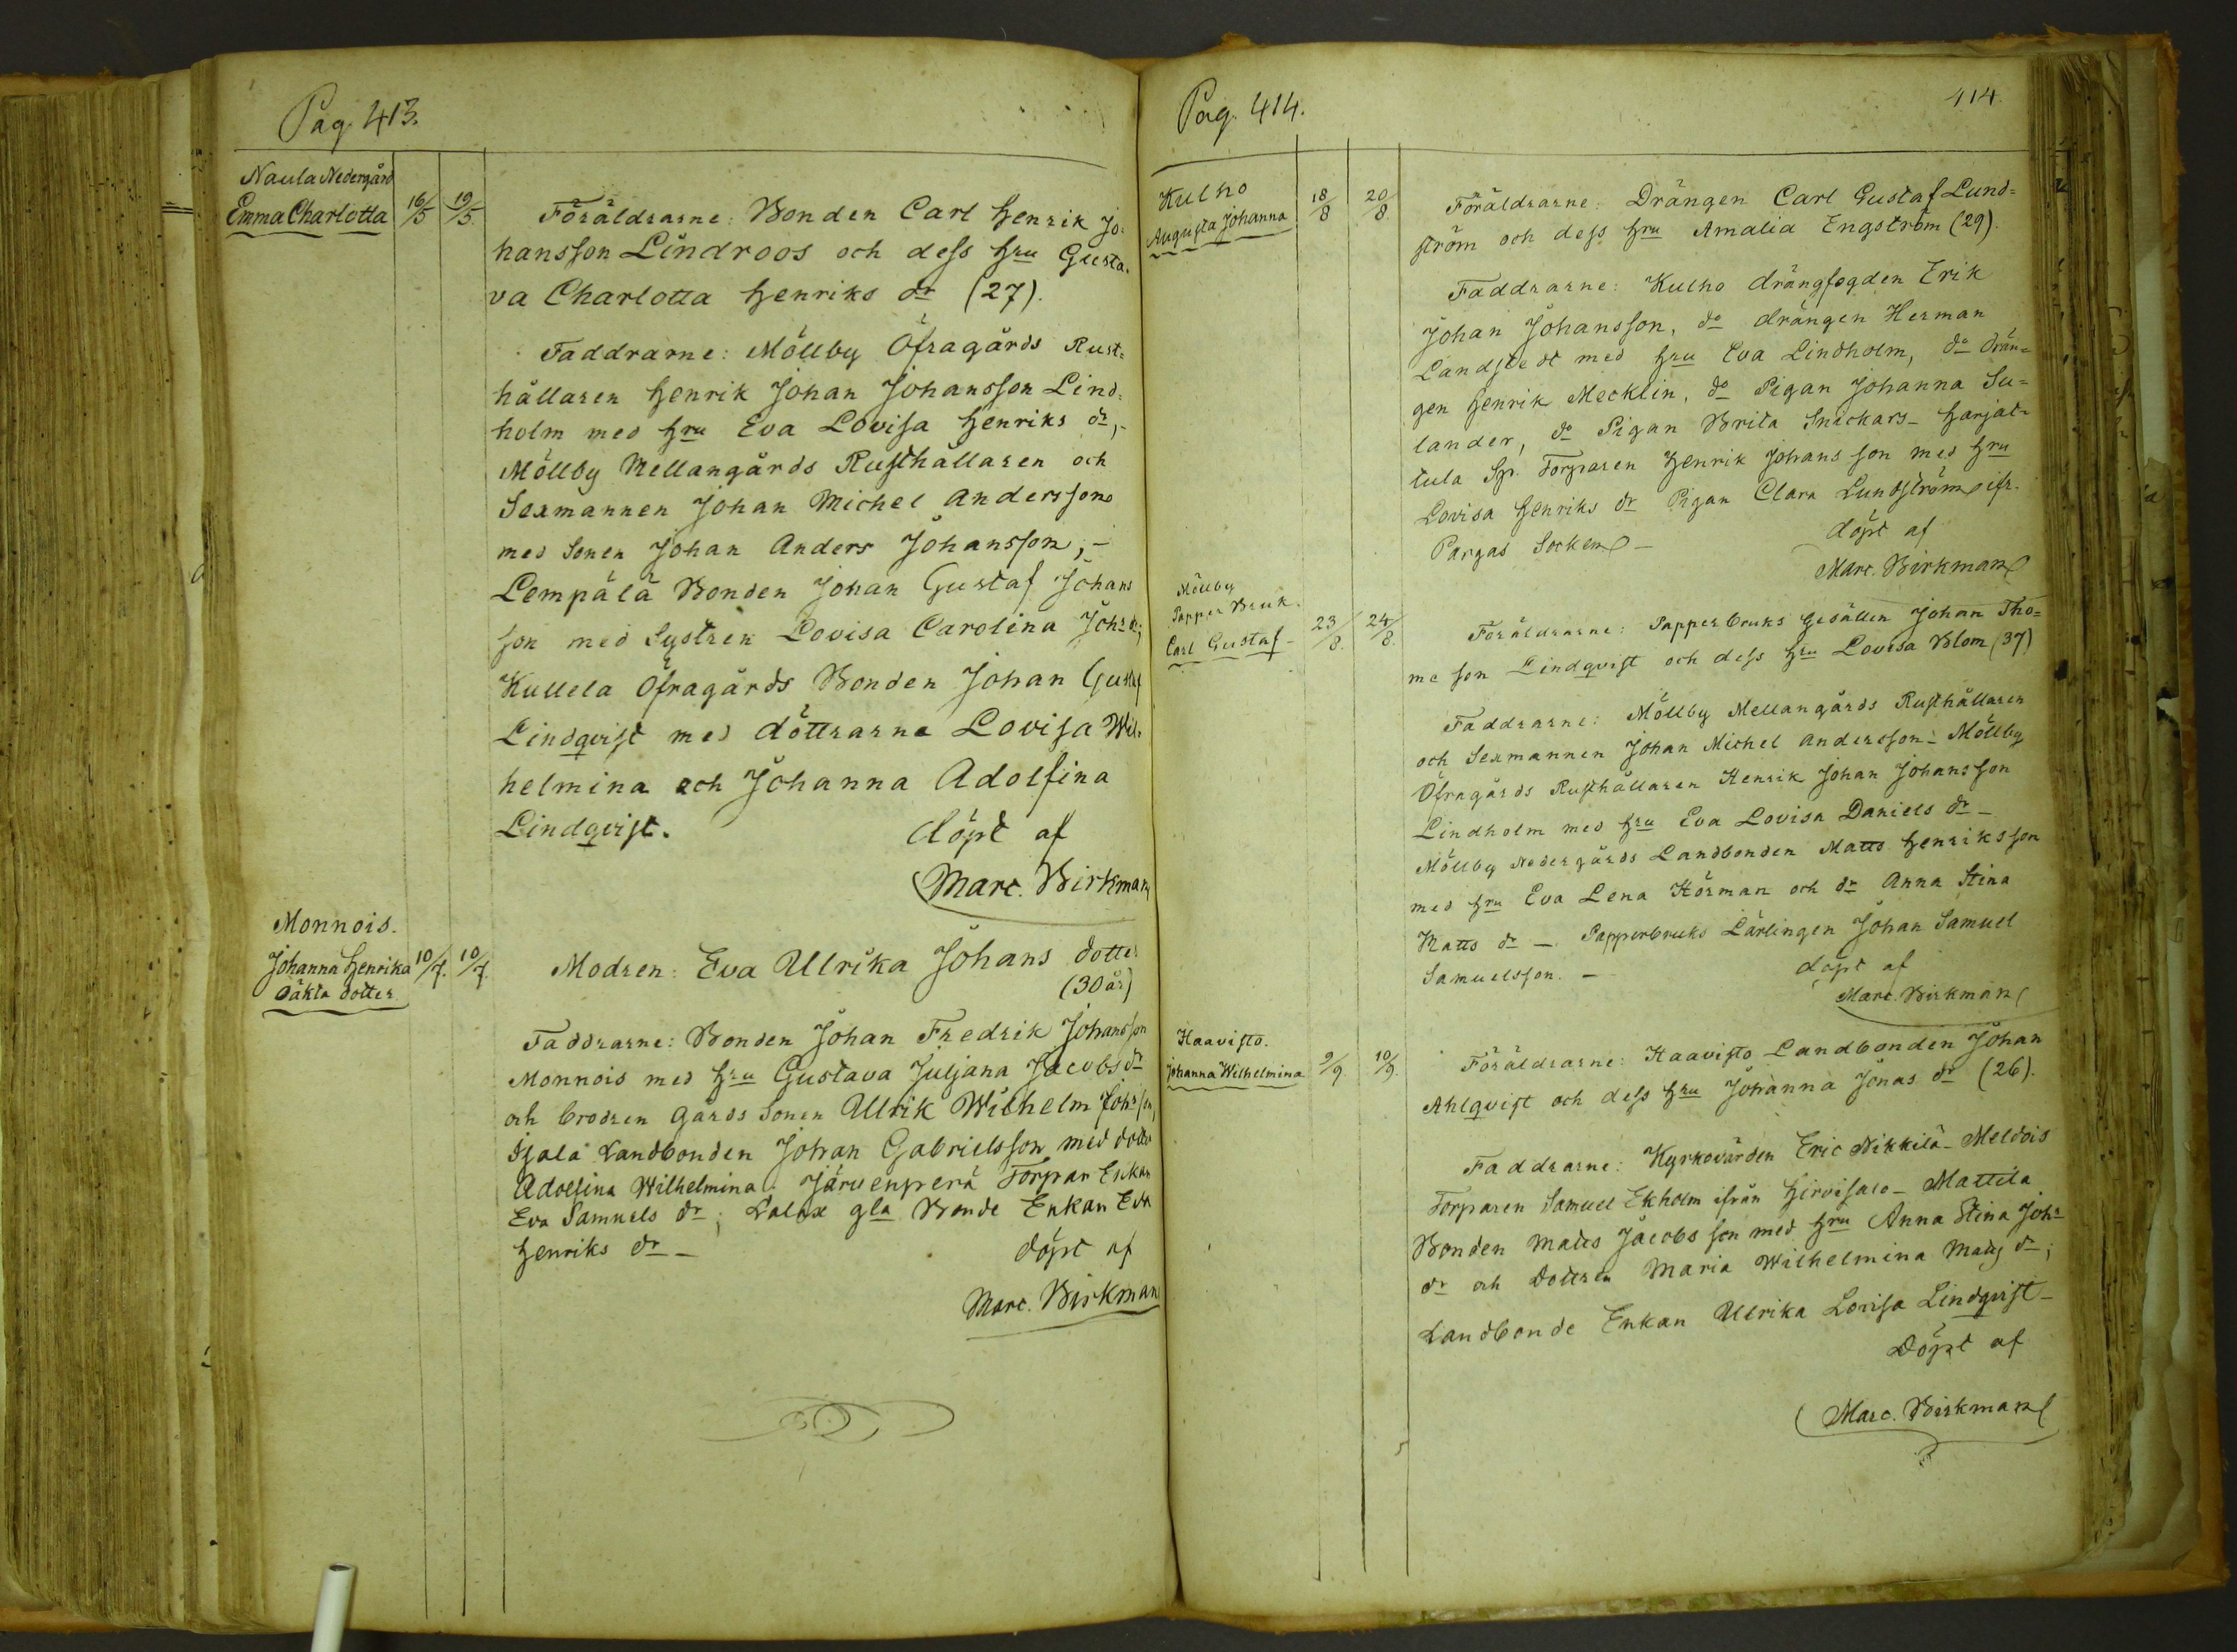 Pag. 413.
Naula Nedergård
Emma Charlotta 16/5 19/5.
Föräldrarne: Bonden Carl Henrik Jo=
hansson Lindroos och dess Hru Gusta=
va Charlotta Henriks dr (27).
Faddrarne: Möllby Öfragårds Rust=
hållaren Henrik Johan Johansson Lind=
holm med Hru Eva Lovisa Henriks dr,-
Möllby Mellangårds Rusthållaren och
Sexmannen Johan Michel Andersson
med Sonen Johan Anders Johansson,-
Lempälä Bonden Johan Gustaf Johans
son med Systren Lovisa Carolina Johs dr;
Kullela Öfragårds Bonden Johan Gustaf
Lindqvist med döttrarne Lovisa Wil=
helmina och Johanna Adolfina
Lindqvist.
döpt af
Marc. Birkman
Monnois.
Johanna Henrika 10/7. 10/7.
oäkta dotter
Modren: Eva Ulrika Johans dotter
(30 år)
Faddrarne: Bonden Johan Fredrik Johansson
Monnois med Hru Gustava Juljana Jacobs dr
och brodren Gårds Sonen Ulrik Wilhelm Johs son,
Landbonden Johan Gabrielsson med dotter
Adolfina Wilhelmina. Järvenperä Torpar Enkan
Eva Samuels dr; gla Bonde Enkan Eva
Henriks dr -
döpt af
Marc. Birkman
Pag. 414.
414.
Kulho
Augusta Johanna 18/8 20/8.
Föräldrarne: Drängen Carl Gustaf Lund=
ström och dess Hru Amalia Engström (29).
Faddrarne: Kulho drängfogden Erik
Johan Johansson, do drängen Herman
Landstedt med Hru Eva Lindholm, do drän=
gen Henrik Mecklin, do Pigan Johanna Su=
lander, do Pigan Brita Snickars - Harjat=
tula Torparen Henrik Johansson med Hru
Lovisa Henriks dr Pigan Clara Lundström ifr.
Pargas Socken -
döpt af
Marc. Birkman
Möllby
Papper Bruk.
Carl Gustaf - 23/8. 24/8.
Föräldrarne: Pappersbruks Gesällen Johan Tho=
me son Lindqvist och dess Hru Lovisa Blom (37)
Faddrarne: Möllby Mellangårds Rusthållaren
och Sexmannen Johan Michel Andersson - Möllby
Öfragårds Rusthållaren Henrik Johan Johansson
Lindholm med Hru Eva Lovisa Daniels dr -
Möllby Nedergårds Landbonden Matts Henriksson
med Hru Eva Lena Hörman och dr Anna Stina
Matts dr - Papperbruks Lärlingen Johan Samuel
Samuelsson. -
döpt af
Marc. Birkman
Haavisto.
Johanna Wilhelmina 9/9. 10/9.
Föräldrarne: Haavisto Landbonden Johan
Ahlqvist och dess Hru Johanna Jonas dr (26).
Faddrarne: Kyrkovärden Eric Nikkilä - Meldois
Torparen Samuel Ekholm ifrån Hirvisalo - Mattila
Bonden Matts Jacobs son med Hru Anna Stina Johs
dr och Dottren Maria Wilhelmina Matts dr;
Landbonde Enkan Ulrika Lovisa Lindqvist -
Döpt af
Marc. Birkman